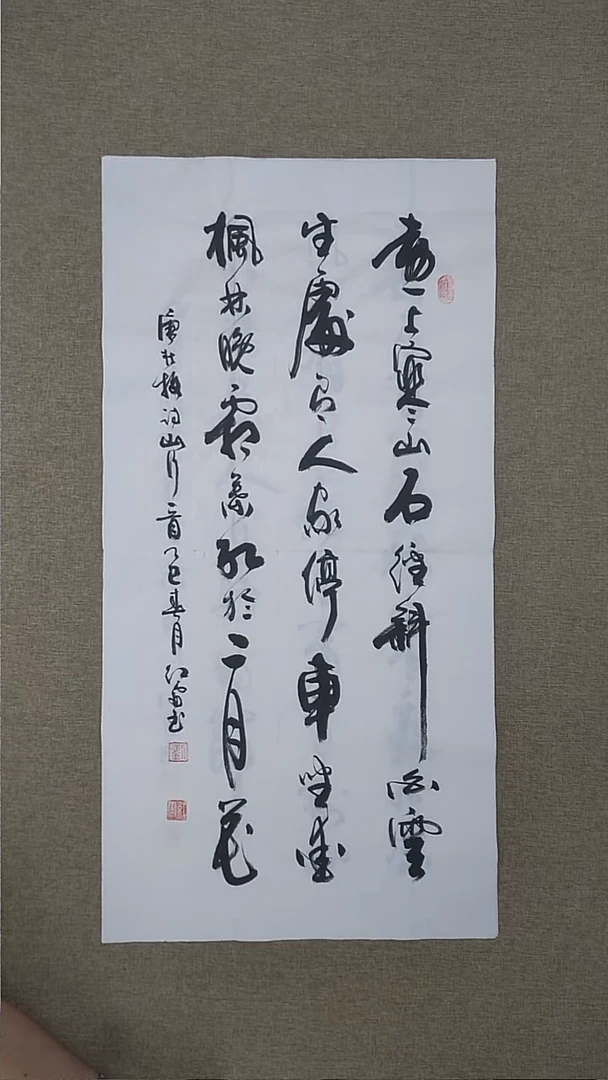 遠上寒山石徑斜白雲
生處有人家停車坐愛
楓林晚霜葉紅於二月花
唐杜牧詩山行一首乙巳春月書